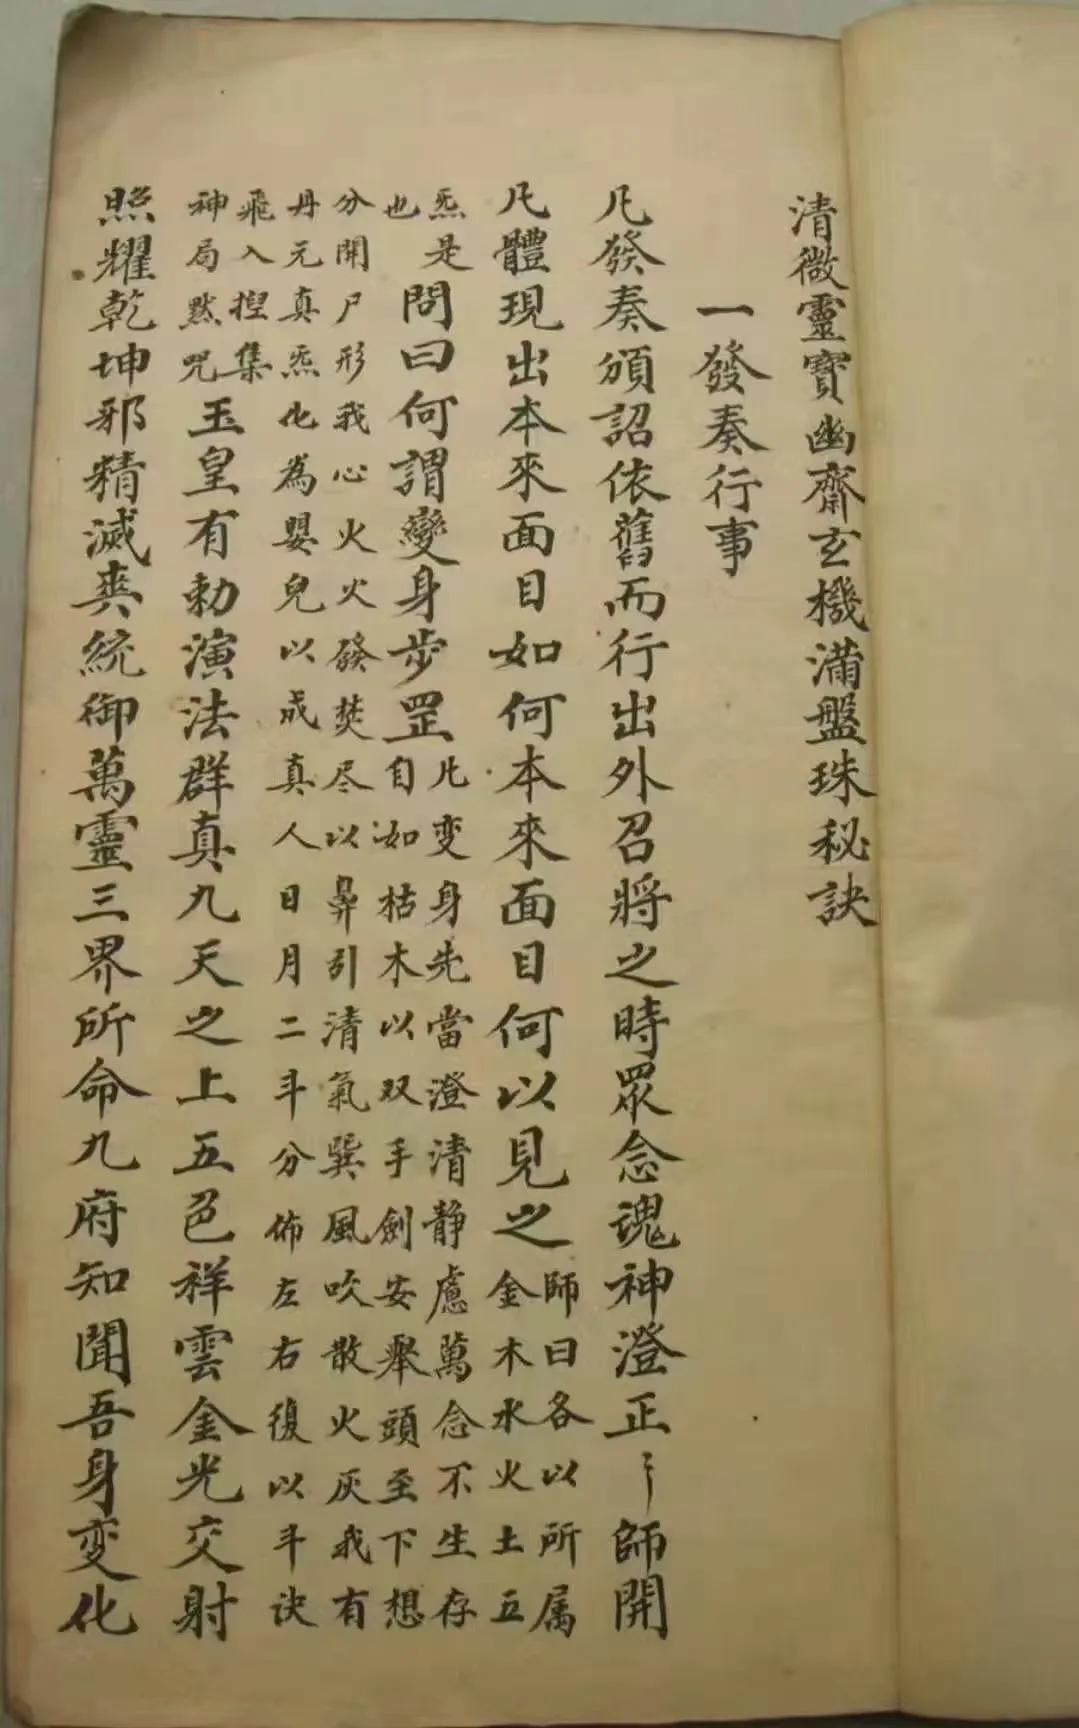 清微靈寶幽齋玄機滿盤珠秘訣
一發奏行事
凡發奏頒詔依舊而行出外召將之時眾念魂神澄正〻師開
凡體現出本來面目如何本來面目何以見之師曰各以所属
金木水火土五
炁是
也
問曰何謂變身步罡
凡变身先當澄清静慮萬念不生存
自如枯木以双手劍安舉頭至下想
分開尸形我心火火發焚尽以鼻引清氣巽風吹散火灰我有
丹元真炁化為嬰兒以成真人日月二斗分佈左右復以斗诀
飛入捏集
神局黙咒
玉皇有勅演法群真九天之上五色祥雲金光交射
照耀乾坤邪精滅爽統御萬靈三界所命九府知聞吾身变化